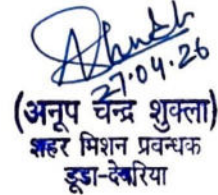 27.04.26
(अनूप चन्द्र शुक्ला)
शहर मिशन प्रवन्धक
डूडा-देवरिया